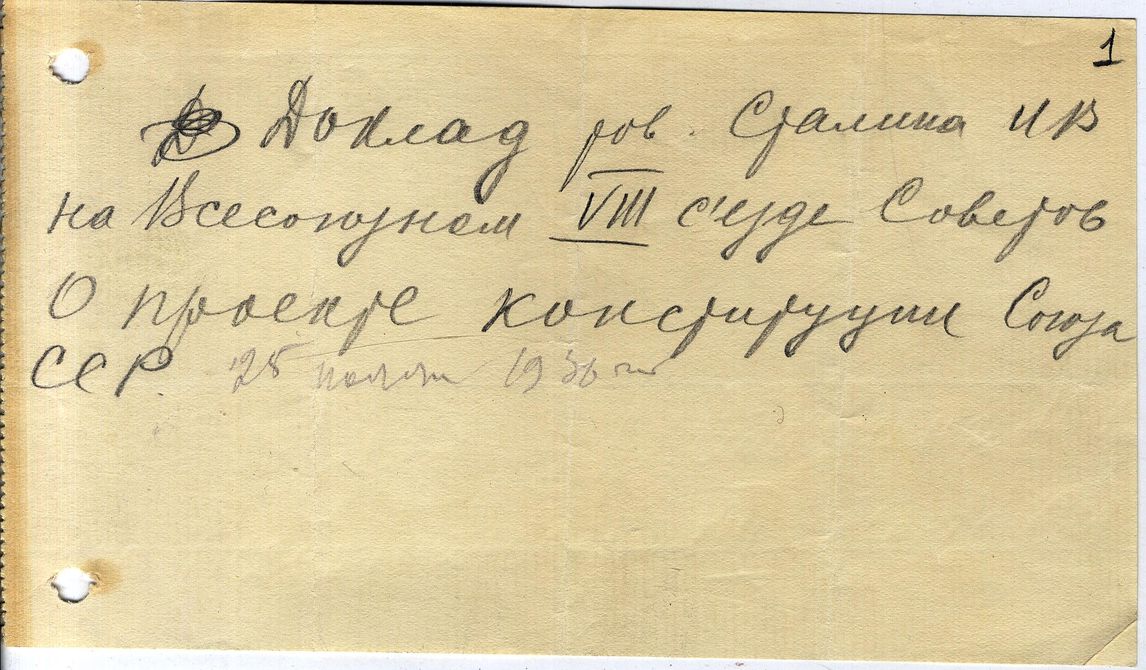 1
Доклад тов. Сталина И В
на Всесоюзном VIII с'езде Советов
О проекте конституции Союза
ССР. 25 ноября 1936 г.